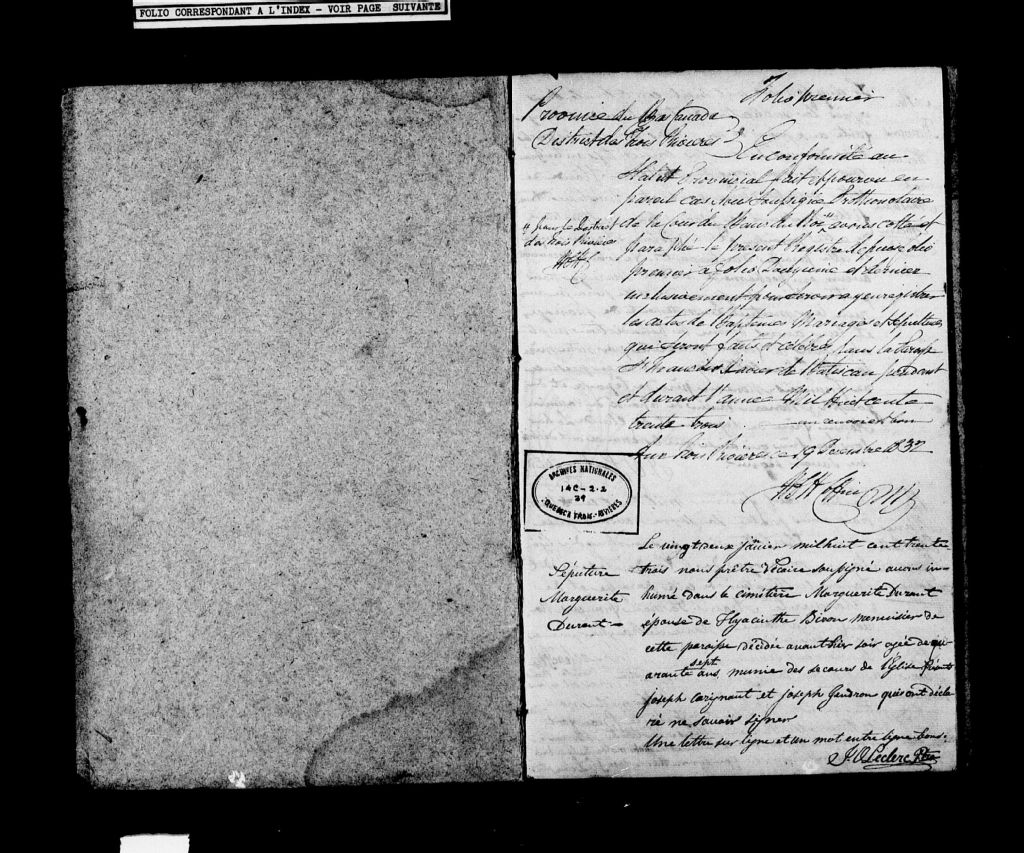 FOLIO CORRESPONDANT A L'INDEX - VOIR PAGE SUIVANTE
Folio premier
Province du Bas Canada
District des Trois Rivieres
En conformité au
Statut Provincial fait et pourvu en
pareil cas Nous soussigné Prothonotaire
de la Cour du Banc du Roi avons cotté et
// pour le District
des Trois Rivieres
paraphé le present Registre depuis folio
premier a folio et dernier
inclusivement pour servir a y enregistrer
les actes de Baptemes Mariages et Sepultures
qui seront faits et célébrés dans la Paroisse
St François Xavier de Batiscan pendant
et durant l'année Mil huit cent
trente trois
Aux Trois Rivieres ce 19 Decembre 1832
ARCHIVES NATIONALES
14C-2.2
39
QUEBEC A TROIS-RIVIÈRES
Le vingt deux janvier mil huit cent trente
trois nous prêtre soussigné avons in-
Sépulture
Marguerite
Durant
humé dans le cimitière Marguerite Durant
épouse de Hyacinthe menuisier de
cette paroisse décédée avant hier soir agée de qu
arante sept ans, munie des secours de l'Eglise
Joseph Carignant et Joseph Gendron qui ont décla
ré ne savoir signer
Une lettre sur ligne et un mot entre ligne bons.
Leclerc Ptre